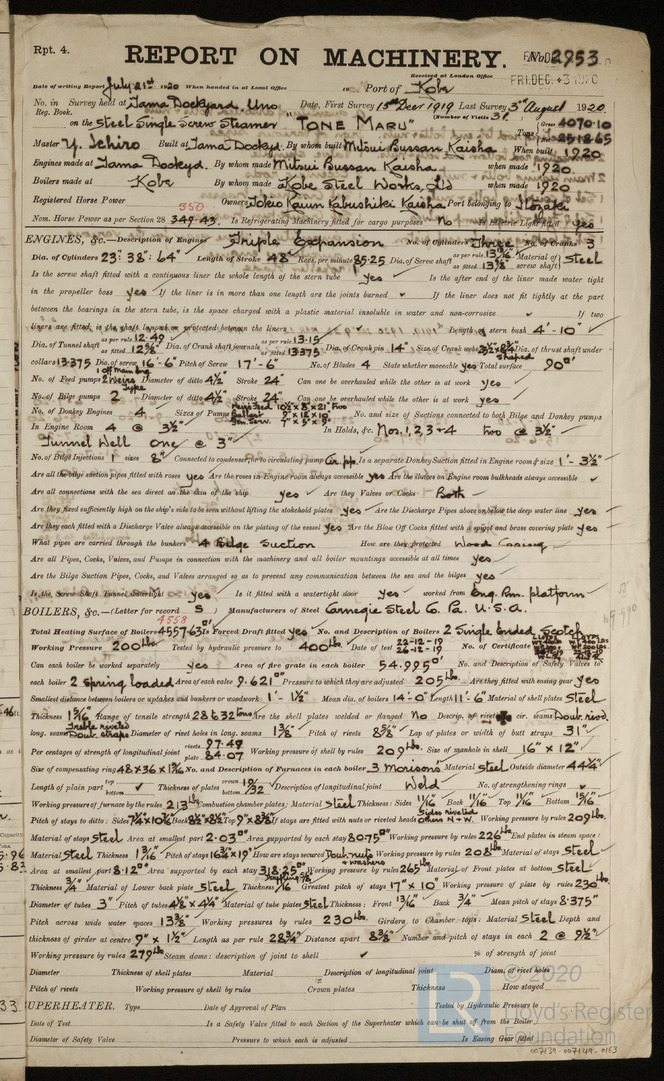 Rpt. 4.
REPORT ON MACHINERY.
No 2953
Received at London Office
FRI. DEC. 3 1920
Date of writing Report July 21st 1920 When handed in at Local Office Port of Kobe
No. in Survey held at Tama Dockyard, Uno Date, First Survey 15th Decr 1919 Last Survey 3rd August 1920
Reg. Book. (Number of Visits 31)
on the Steel Single Screw Steamer "TONE MARU" Tons Gross 4070.10 Net 2518.65
Master Y. Ichiro Built at Tama Dockyd. By whom built Mitsui Bussan Kaisha When built 1920
Engines made at Tama Dockyd. By whom made Mitsui Bussan Kaisha when made 1920
Boilers made at Kobe By whom made Kobe Steel Works, Ltd when made 1920
Registered Horse Power Owners Kaiun Kabushiki Kaisha Port belonging to
350
Nom. Horse Power as per Section 28 349.43 Is Refrigerating Machinery fitted for cargo purposes No Is Electric Light fitted yes
ENGINES, &c.—Description of Engines Triple Expansion No. of Cylinders Three No. of Cranks 3
Dia. of Cylinders 23" 38" 64" Length of Stroke 48" Revs. per minute 85.25 Dia. of Screw shaft as per rule as fitted 13 7/8 Material of screw shaft Steel
Is the screw shaft fitted with a continuous liner the whole length of the stern tube yes Is the after end of the liner made water tight
in the propeller boss yes If the liner is in more than one length are the joints burned If the liner does not fit tightly at the part
between the bearings in the stern tube, is the space charged with a plastic material insoluble in water and non-corrosive If two
liners are fitted, is the shaft lapped or protected between the liners Length of stern bush 4'-10"
Dia. of Tunnel shaft as per rule 12.49 as fitted 12 5/8 Dia. of Crank shaft journals as per rule 13.15 as fitted 13.375 Dia. of Crank pin 14" Size of Crank webs Dia. of thrust shaft under
collars 13.375 Dia. of screw 16'-6" Pitch of Screw 17'-6" No. of Blades 4 State whether moveable yes Total surface 90
No. of Feed pumps 2 Weirs Diameter of ditto 4 1/2 Stroke 24" Can one be overhauled while the other is at work yes
No. of Bilge pumps 2 Diameter of ditto 4 1/2 Stroke 24" Can one be overhauled while the other is at work yes
No. of Donkey Engines 4 Sizes of Pumps No. and size of Suctions connected to both Bilge and Donkey pumps
In Engine Room 4 @ 3 1/2" In Holds, &c. Nos. 1, 2, 3 + 4 two @ 3 1/2"
Tunnel Well one @ 3"
No. of Bilge Injections 1 sizes 8" Connected to condenser, or to circulating pump Cir. pp. Is a separate Donkey Suction fitted in Engine room & size 1 - 3 1/2"
Are all the bilge suction pipes fitted with roses yes Are the roses in Engine room always accessible yes Are the sluices on Engine room bulkheads always accessible
Are all connections with the sea direct on the skin of the ship yes Are they Valves or Cocks Both
Are they fixed sufficiently high on the ship's side to be seen without lifting the stokehold plates yes Are the Discharge Pipes above or below the deep water line yes
Are they each fitted with a Discharge Valve always accessible on the plating of the vessel yes Are the Blow Off Cocks fitted with a spigot and brass covering plate yes
What pipes are carried through the bunkers 4 Bilge Suction How are they protected Wood Casing
Are all Pipes, Cocks, Valves, and Pumps in connection with the machinery and all boiler mountings accessible at all times yes
Are the Bilge Suction Pipes, Cocks, and Valves arranged so as to prevent any communication between the sea and the bilges yes
Is the Screw Shaft Tunnel watertight yes Is it fitted with a watertight door yes worked from Eng. Rm. platform
BOILERS, &c.—(Letter for record S) Manufacturers of Steel Carnegie Steel Co. Pa. U.S.A.
4558
Total Heating Surface of Boilers 4557.63 Is Forced Draft fitted yes No. and Description of Boilers 2 Single Ended Scotch
Working Pressure 200 lbs. Tested by hydraulic pressure to 400 lbs. Date of test 22-12-19 26-12-19 No. of Certificate
Can each boiler be worked separately yes Area of fire grate in each boiler 54.995 No. and Description of Safety Valves to
each boiler 2 Spring loaded Area of each valve 9.621 Pressure to which they are adjusted 205 lbs. Are they fitted with easing gear yes
Smallest distance between boilers or uptakes and bunkers or woodwork 1'-1 1/2" Mean dia. of boilers 14'-0" Length 11'-6" Material of shell plates Steel
Thickness 1 5/16 Range of tensile strength 28 to 32 tons Are the shell plates welded or flanged No Descrip. of riveting: cir. seams Doub. rivd.
long. seams Treble riveted Doub. straps Diameter of rivet holes in long. seams 1 3/8 Pitch of rivets 8 5/8 Lap of plates or width of butt straps 31"
Per centages of strength of longitudinal joint rivets 97.49 plate 84.07 Working pressure of shell by rules 209 lbs. Size of manhole in shell 16" x 12"
Size of compensating ring 48 x 36 x 1 5/16 No. and Description of Furnaces in each boiler 3 Morisons Material Steel Outside diameter 44 1/4"
Length of plain part top bottom Thickness of plates crown bottom 19/32 Description of longitudinal joint Weld No. of strengthening rings
Working pressure of furnace by the rules 213 lbs Combustion chamber plates: Material Steel Thickness: Sides 11/16 Back 11/16 Top 11/16 Bottom 15/16
Pitch of stays to ditto: Sides Back Top If stays are fitted with nuts or riveted heads Sides riveted others N. W. Working pressure by rules 209 lbs.
Material of stays Steel Area at smallest part 2.03 Area supported by each stay 80.75 Working pressure by rules 226 lbs End plates in steam space:
Material Steel Thickness 1 3/16 Pitch of stays 16 3/4 x 19" How are stays secured Doub. nuts + washers Working pressure by rules 208 lbs Material of stays Steel
Area at smallest part 8.12 Area supported by each stay 318.25 Working pressure by rules 265 lbs Material of Front plates at bottom Steel
Thickness 3/4 Material of Lower back plate Steel Thickness Greatest pitch of stays 17" x 10" Working pressure of plate by rules 230 lbs.
Diameter of tubes 3" Pitch of tubes 4 1/4 x 4 1/4 Material of tube plates Steel Thickness: Front 13/16 Back 3/4 Mean pitch of stays 8.375"
Pitch across wide water spaces 13 3/8 Working pressures by rules 230 lbs. Girders to Chamber tops: Material Steel Depth and
thickness of girder at centre 9" x 1 1/2" Length as per rule 28 3/4 Distance apart 8 3/8 Number and pitch of stays in each 2 @ 9 1/2"
Working pressure by rules 279 lbs Steam dome: description of joint to shell % of strength of joint
Diameter Thickness of shell plates Material Description of longitudinal joint Diam. of rivet holes
Pitch of rivets Working pressure of shell by rules Crown plates Thickness How stayed
SUPERHEATER. Type Date of Approval of Plan Tested by Hydraulic Pressure to
Date of Test Is a Safety Valve fitted to each Section of the Superheater which can be shut off from the Boiler
Diameter of Safety Valve Pressure to which each is adjusted Is Easing Gear fitted
© 2020
Lloyd's Register
Foundation
007139-007149-0153